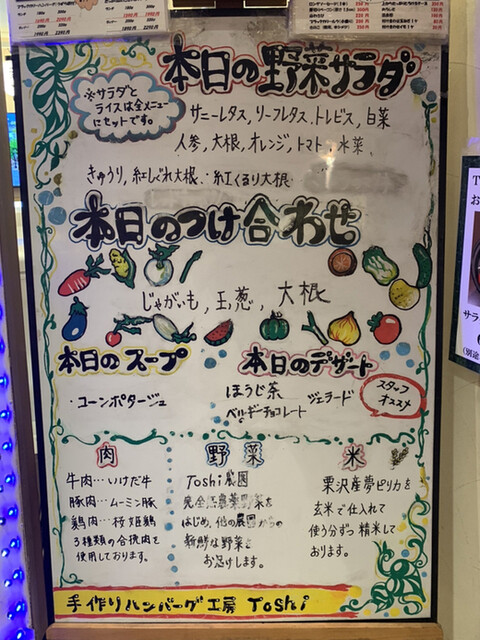 本日の野菜サラダ
※サラダと
ライスは全メニュー
にセットです。
サニーレタス, リーフレタス, トレビス, 白菜
人参, 大根, オレンジ, トマト, 水菜,
きゅうり, 紅しぐれ大根, 紅くるり大根
本日のつけ合わせ
じゃがいも, 玉葱, 大根
本日のスープ
・コーンポタージュ
本日のデザート
ほうじ茶 ジェラード
ベルギーチョコレート
スタッフ
オススメ
肉
牛肉…いけだ牛
豚肉…ムーミン豚
鶏肉…桜姫鶏
3種類の合挽肉を
使用しております。
野菜
Toshi農園
完全無農薬野菜を
はじめ、他の農園からの
新鮮な野菜を
お届けします。
米
栗沢産夢ピリカを
玄米で仕入れて
使う分ずつ精米して
おります。
手作りハンバーグ工房 Toshi